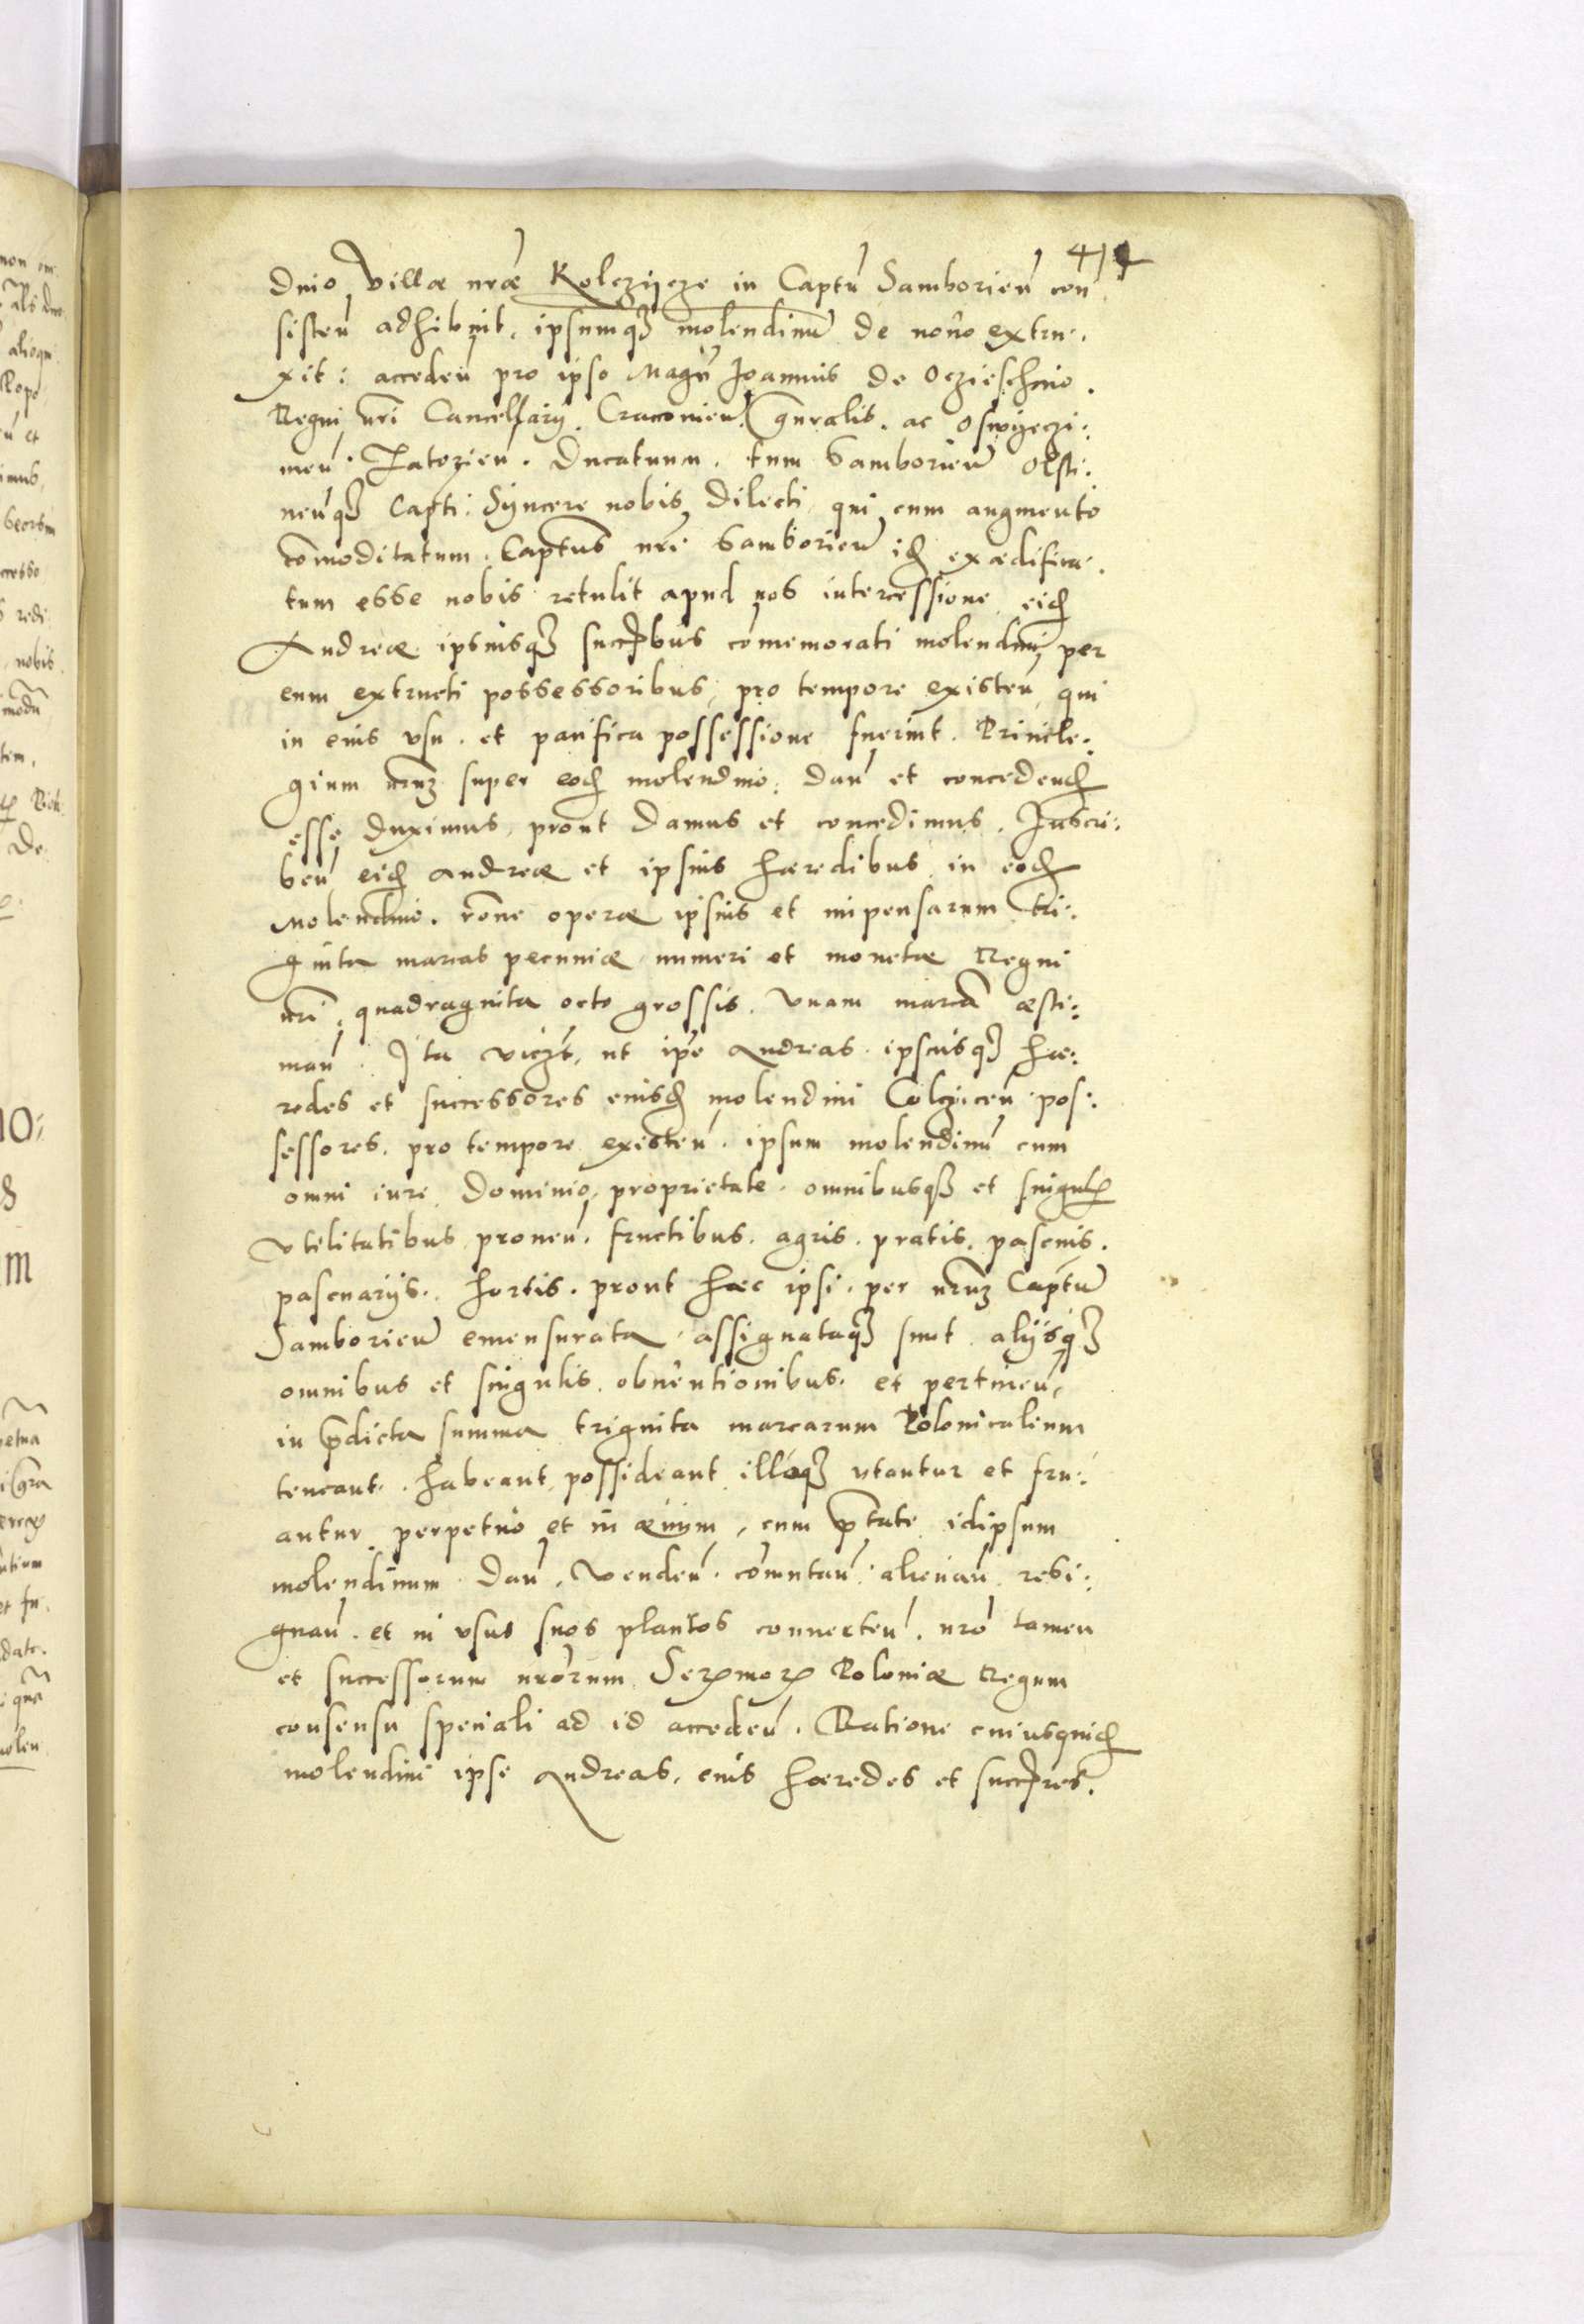 414
dnio villæ nræ Kolczycze in Captu Samborieñ con
sisteñ adhibuit, ipsumq3 molendinũ de novo extru:
xit: accedeñ pro ipso Magci Joannis de Oczieschino.
Regni nri Cancellarij. Cracovieñ gnralis. ac Oswyeczi:
meñ. Zatorieñ. Ducatuum. tum Samborieñ Olsti:
neñq3 Capti: Syncere nobis dilecti qui cum augmento
comoditatum. Captus nri Samborieñ id exædifica:
tum esse nobis retulit apud nos intercessione eid
Andreæ ipsiusq3 succribus comemorati molendini per
eum extructi possessoribus, pro tempore existeñ qui
in eius usu. et pacifica possessione fuerint. Privile:
gium nrum super eod molendino: dañ et concedend
esse duximus, prout damus et concedimus. Inscri:
beñ eid Andreæ et ipsius hæredibus in eod
Molendino. rone operæ ipsius et impensarum tri:
ginta marcas pecuniæ numeri et monetæ Regni
nri, quadraginta octo grossis. vnam marcã æsti:
mañ. Ita viczt, ut ipe Andreas ipsiusq3 hæ:
redes et successores eiusd molendini Colcziceñ pos:
sessores. pro tempore existeñ. ipsum molendinũ cum
omni iure dominio, proprietate. omnibusq3 et singul
vtilitatibus proueñ. fructibus. agris. pratis. pascuis.
pascuarijs. hortis. prout hæc ipsi. per nrum Captum
Samborieñ emensurata, assignataq3 sunt alijsq3
omnibus et singulis. obventionibus. et pertineñ,
in pdicta summa triginta marcarum Polonicalium
teneant. habeant possideant illoq3 vtantur et fru:
antur perpetuo et in ævum, cum ptate idipsum
molendinum dañ, vendeñ. comutañ alienañ resi:
gnañ. et in usus suos placitos conuerteñ. nro tamen
et successorum nrorum Sermor Poloniæ Regum
consensu speciali ad id accedeñ. Ratione cuiusquid
molendini ipse Andreas, eius hæredes et succres.